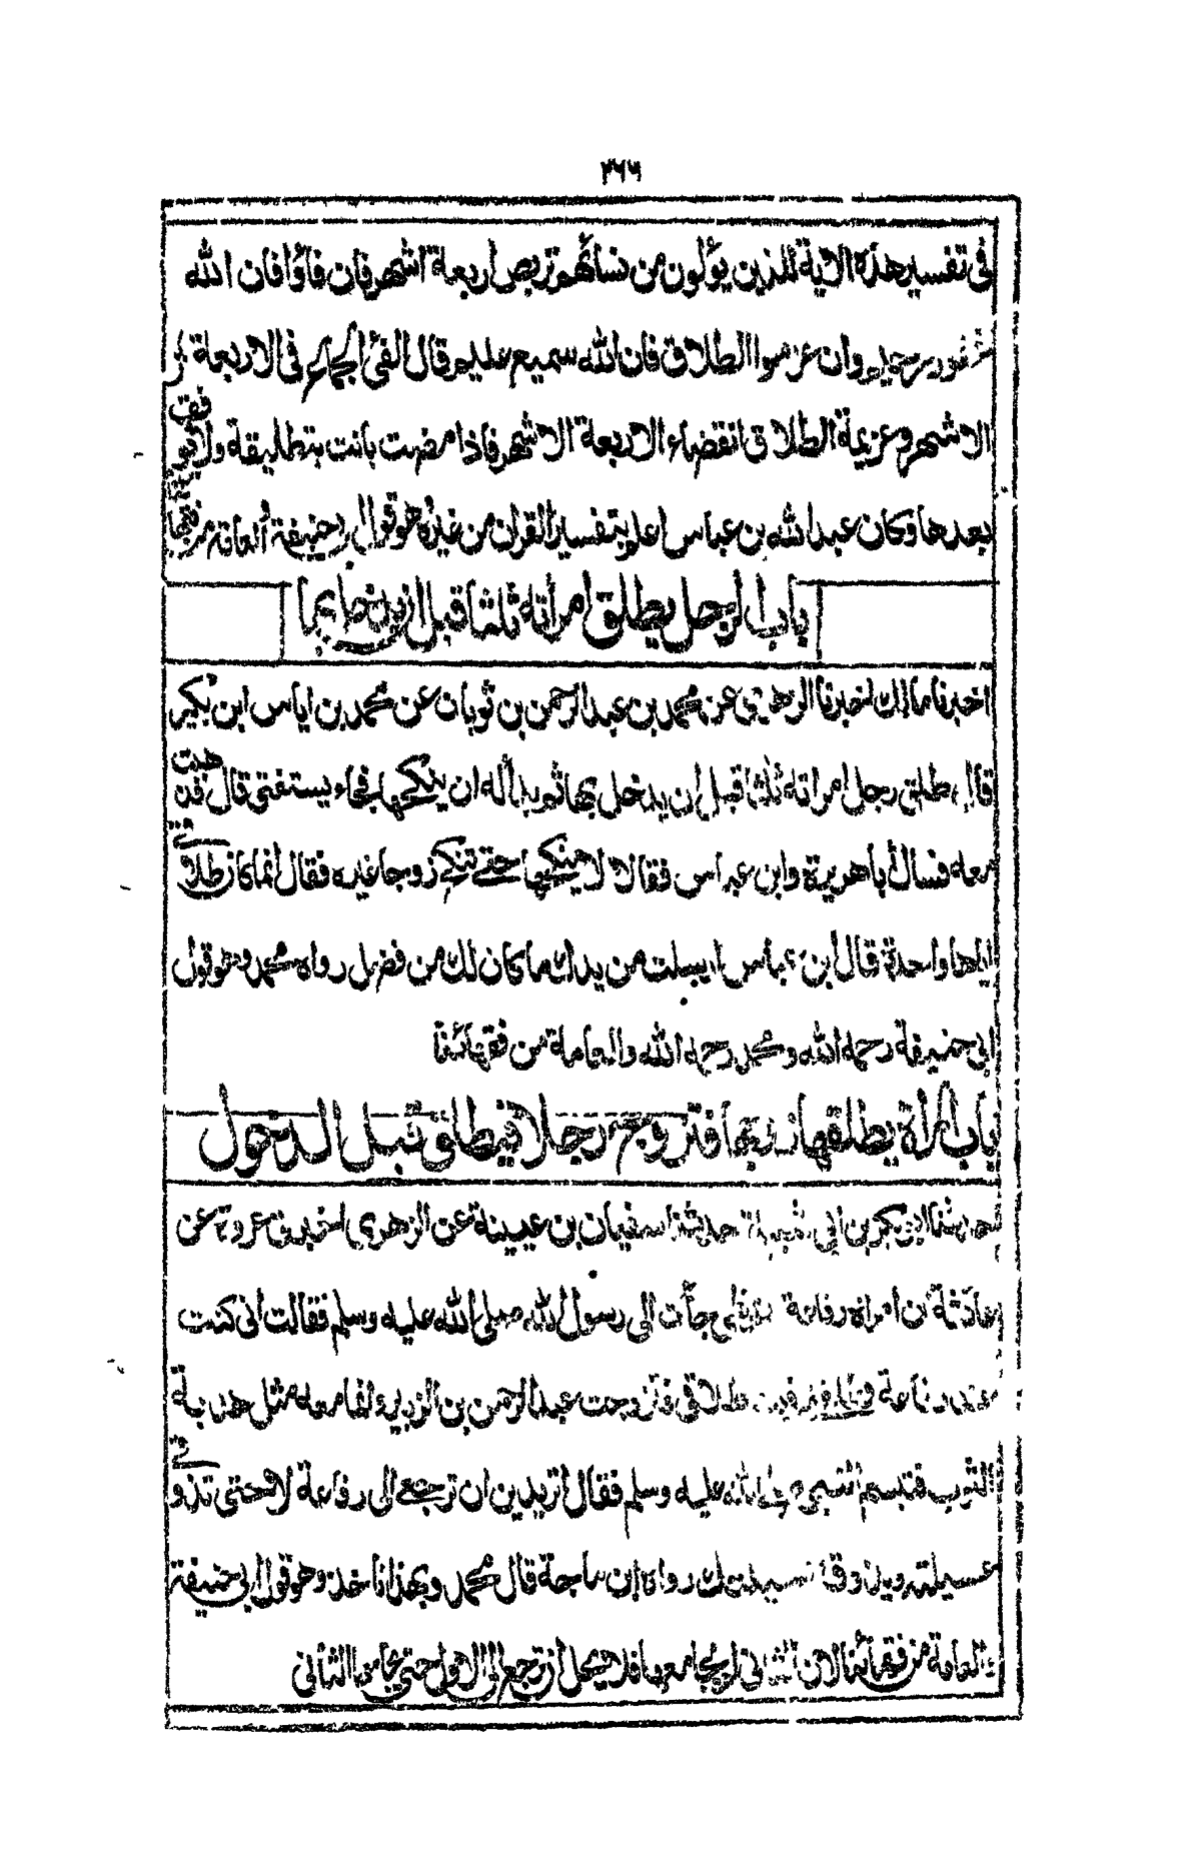 ٣٦٦
فى تفسير هذه الاية للذين يؤلون من نسائهم تربص اربعة اشهر فان فاؤا فان الله
غفور رحيم وان عزموا الطلاق فان الله سميع عليم قال الفئ الجماع فى الاربعة
الاشهر وعزيمة الطلاق انقضاء الاربعة الاشهر فاذا مضت بانت بتطليقة ولا يوقف
بعدها وكان عبد الله بن عباس اعلم بتفسير القران من غيره وهو قول ابى حنيفة والعامة من فقهائنا
باب الرجل يطلق امراته ثلثا قبل ان يدخل بها
اخبرنا مالك اخبرنا الزهرى عن محمد بن عبد الرحمن بن ثوبان عن محمد بن اياس ابن بكير
قال طلق رجل امراته ثلثا قبل ان يدخل بها ثم بدا له ان ينكحها فجاء يستفتى قال فذهبت
معه فسال ابا هريرة وابن عباس فقالا لا ينكحها حتى تنكح زوجا غيره فقال انما كان طلاقى
اياها واحدة قال ابن عباس ارسلت من يدك ما كان لك من فضل رواه محمد وهو قول
ابى حنيفة رحمه الله ومحمد رحمه الله والعامة من فقهائنا
باب المراة يطلقها زوجها فتزوج رجلا فيطلق قبل الدخول
حدثنا ابى بكر بن ابى شيبة حدثنا سفيان بن عيينة عن الزهرى اخبرنى عروة عن
عائشة ان امراة رفاعة القرظى جأت الى رسول الله صلى الله عليه وسلم فقالت انى كنت
عند رفاعة فطلقنى فبت طلاقى فتزوجت عبد الرحمن بن الزبير وانما معه مثل هدبة
الثوب فتبسم النبى صلى الله عليه وسلم فقال اتريدين ان ترجعى الى رفاعة لا حتى تذوقى
عسيلته ويذوق عسيلتك رواه ابن ماجة قال محمد وبهذا ناخذ وهو قول ابى حنيفة
والعامة من فقهائنا لان الثانى لم يجامعها فلا يحل ان ترجع الى الاول حتى يجامعها الثانى